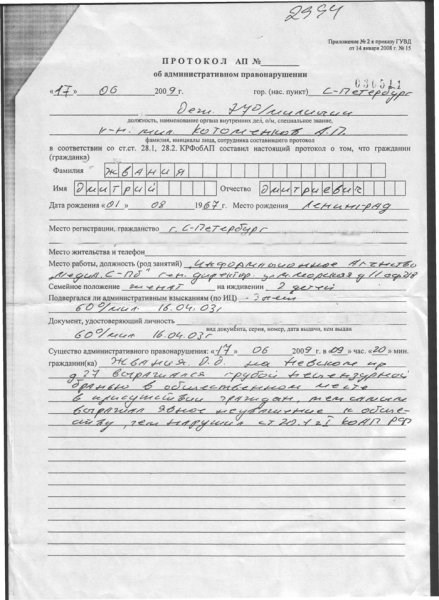 2994
Приложение № 2 к приказу ГУВД
от 14 января 2008 г. № 15
ПРОТОКОЛ АП №
об административном правонарушении
«17» 06 2009 г. гор. (нас. пункт) С-Петербург
Деж. 79 о/милиции
должность, наименование органа внутренних дел, о/м, специальное звание,
мил. Котоменков А.П.
фамилия, инициалы лица, сотрудника составившего протокол
в соответствии со ст.ст. 28.1, 28.2. КРФобАП составил настоящий протокол о том, что гражданин
(гражданка)
Фамилия ЖВАНИЯ
Имя ДМИТРИЙ Отчество ДМИТРИЕВИЧ
Дата рождения «01» 08 1967 г. Место рождения Ленинград
Место регистрации, гражданство г. С-Петербург
Место жительства и телефон
Место работы, должность (род занятий) Информационное Агентство
С-Пб" ген. директор. ул. М. Морская д 11
Семейное положение женат на иждивении 2 детей
Подвергался ли административным взысканиям (по ИЦ)
60 о/мил 16.04.03 г
Документ, удостоверяющий личность
вид документа, серия, номер, дата выдачи, кем выдан
60 о/мил 16.04.03 г
Существо административного правонарушения: «17» 06 2009 г. в 09 час. «20» мин.
граждании(ка) Жвания Д.Д. на Невском пр
д 27 выражался грубой нецензурной
бранью в общественном месте
в присутствии граждан, тем самым
выражал явное неуважение к обще-
ству, чем нарушил ст 20.1 ч 1 КоАП РФ